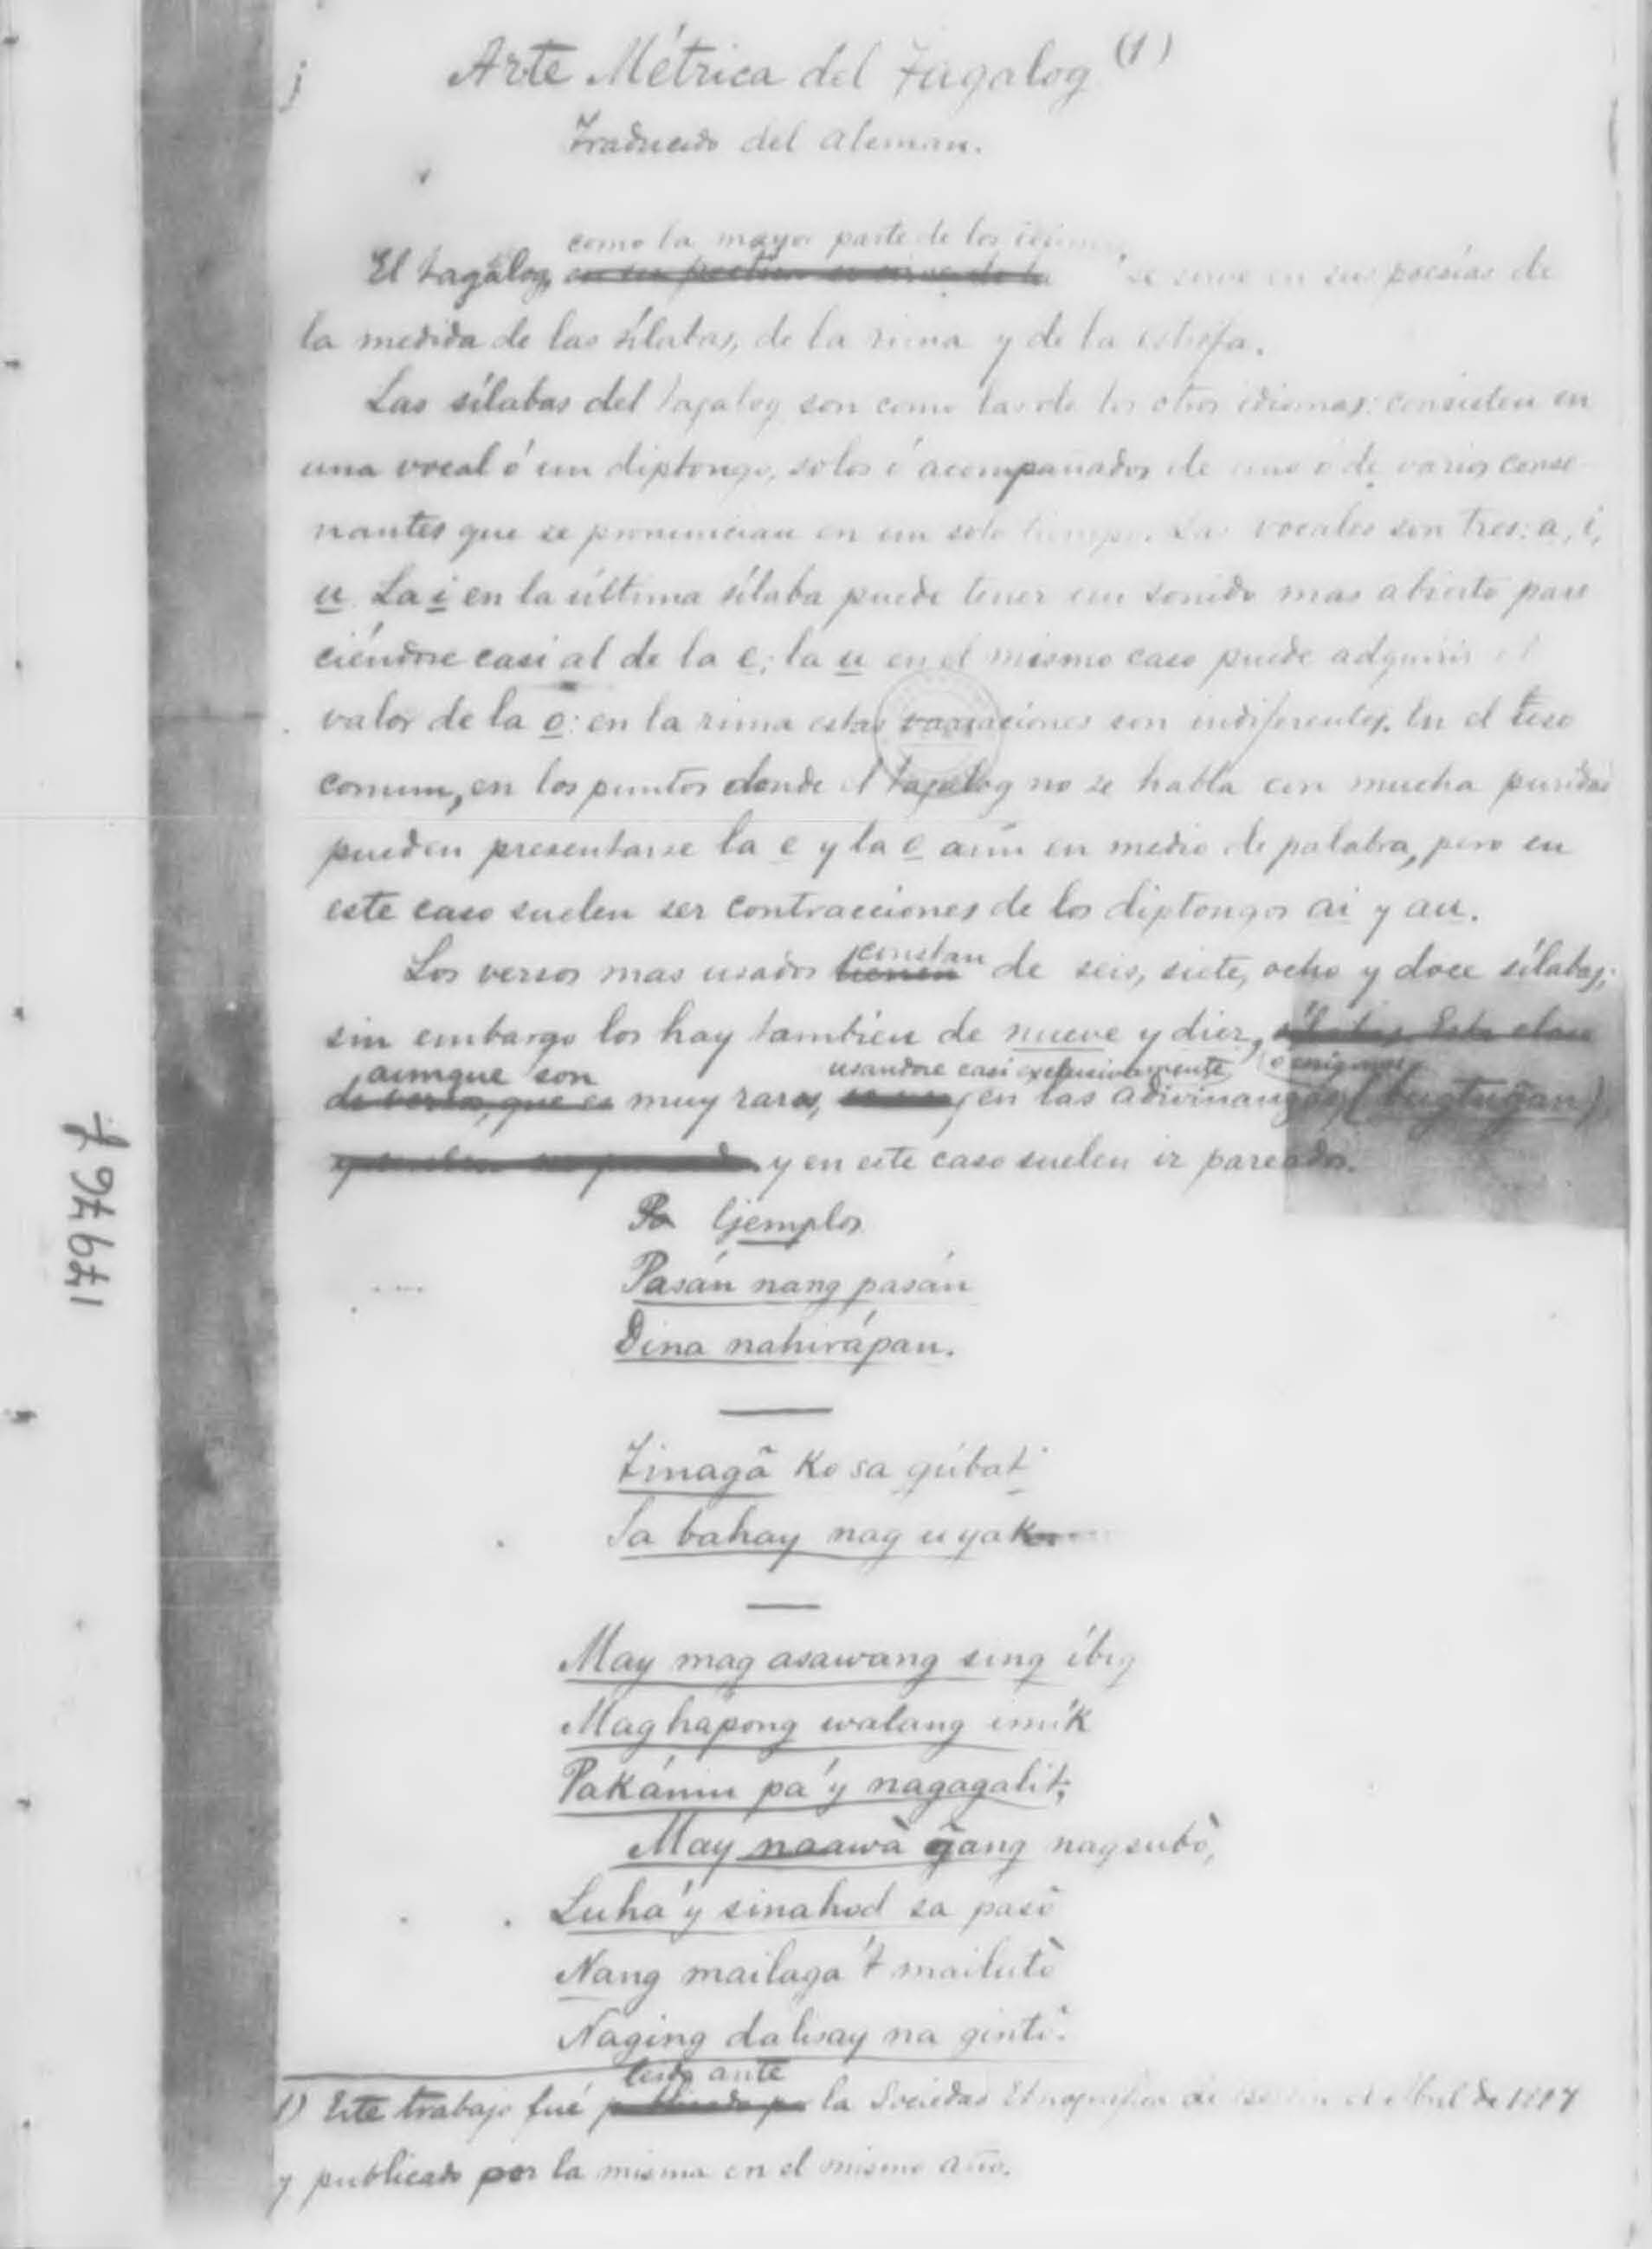 Arte Métrica del Tagalog (1)
Traducido del aleman.
como la mayor parte de los
El tagálog, se sirve en sus poesías de
la medida de las sílabas, de la rima y de la estrofa.
Las sílabas del tagalog son como las de los otros idiomas: consisten en
una vocal ó un diptongo, solos ó acompañados de una ó de varias conso-
nantes que se pronuncian en un solo tiempo. Las vocales son tres: a, i,
u. La i en la última sílaba puede tener un sonido mas abierto pare
ciéndose casi al de la e; la u en el mismo caso puede adquirir el
valor de la o: en la rima estas variaciones son indiferentes. En el uso
comun, en los puntos donde el tagalog no se habla con mucha puridad
pueden presentarse la e y la o aún en medio de palabra, pero en
este caso suelen ser contracciones de los diptongos ai y au.
constan
Los versos mas usados tienen de seis, siete, ocho y doce sílabas;
sin embargo los hay tambien de nueve y diez, sílabas. Esta clase
aunque son usandose casi exclusivamente ó enigmas
de versos, que es muy raros, en las adivinanzas (bugtuğan)
y en este caso suelen ir pareados.
Pa Ejemplos
Pasán nang pasán
Dina nahirápan.
Tinagâ ko sa gúbat
Sa bahay nag uyak
May mag asawang sing íbig
Maghápong walang imík
Pakánin pa'y nagagalit;
May naawà g̃ang nagsubò,
Luhá'y sinahod sa pasô
Nang mailaga't mailutò
Naging dalisay na gintô.
leido ante
1) Este trabajo fué publicado por la Sociedad Etnografica de Berlin el Abril de 1887
y publicado por la misma en el mismo año.
179761